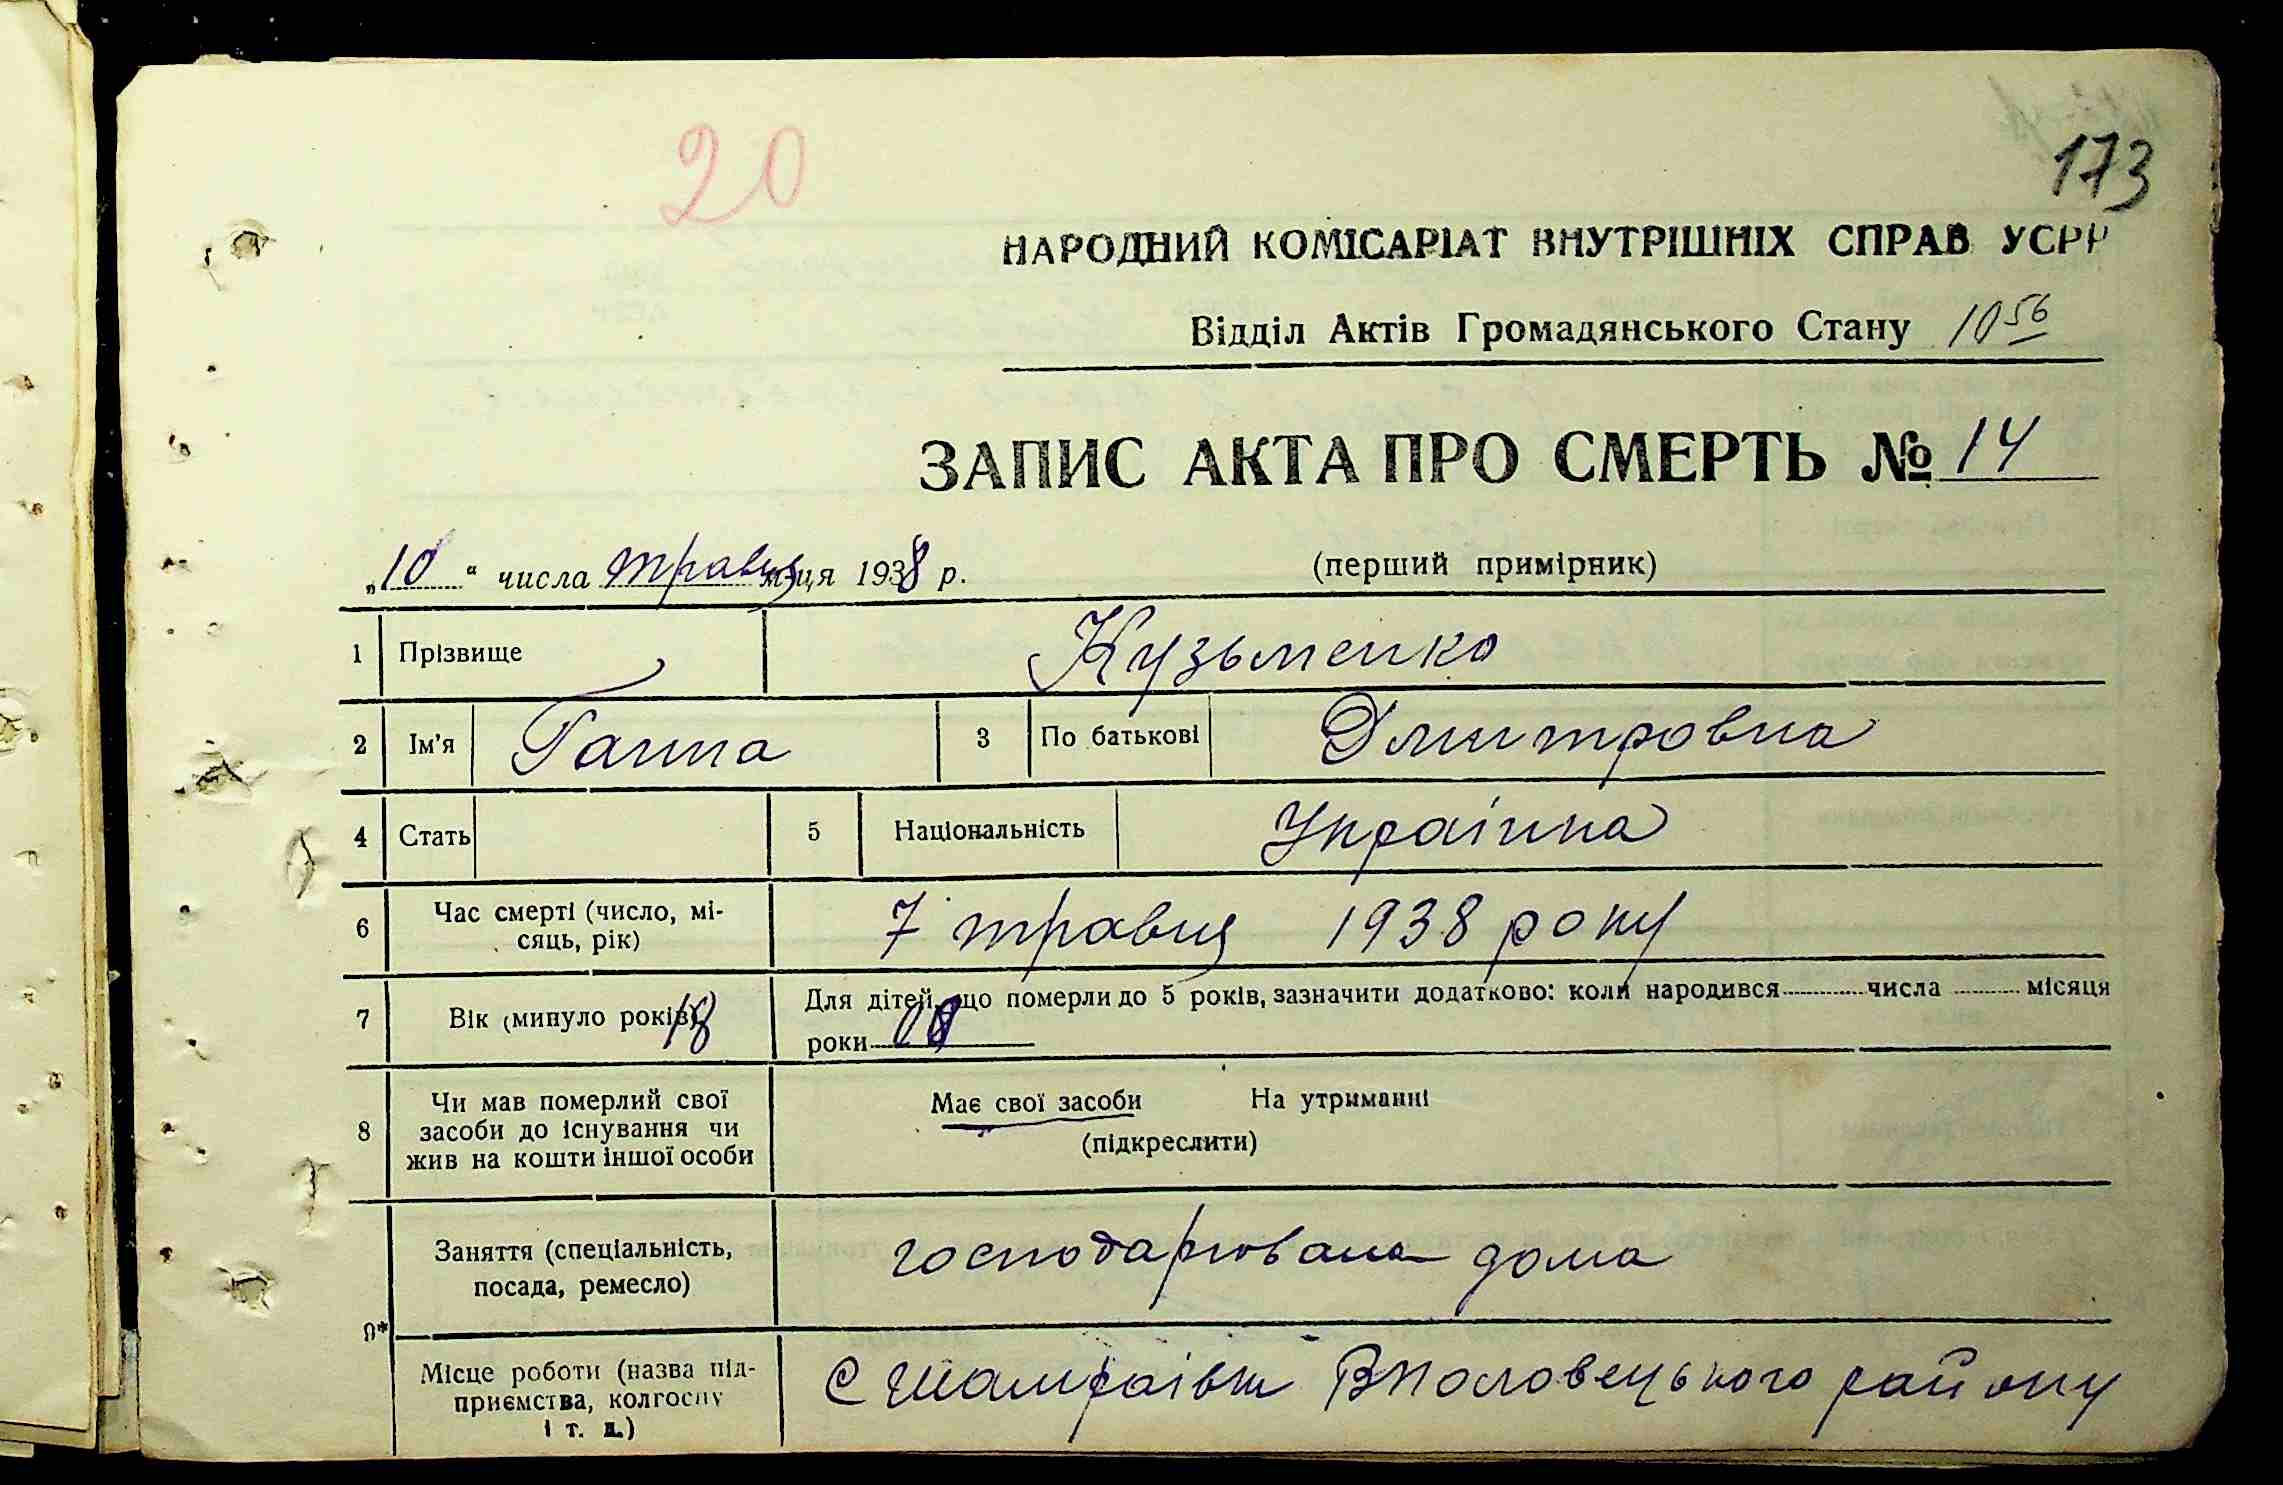 20
173
НАРОДНИЙ КОМІСАРІАТ ВНУТРІШНІХ СПРАВ УСРР
Відділ Актів Громадянського Стану 10 56
ЗАПИС АКТА ПРО СМЕРТЬ № 14
„10“ числа травця м-ця 1938 р. (перший примірник)
1 Прізвище Кузьменко
2 Ім'я Ганна 3 По батькові Дмитровна
4 Стать 5 Національність Українка
6 Час смерті (число, мі-
сяць, рік) 7 травця 1938 року
7 Вік (минуло років) 18 Для дітей, що померли до 5 років, зазначити додатково: коли народився числа місяця
роки
8 Чи мав померлий свої
засоби до існування чи
жив на кошти іншої особи
Має свої засоби На утриманні
(підкреслити)
Заняття (спеціальність,
посада, ремесло) господарювала дома
9*
Місце роботи (назва під-
приємства, колгоспу
і т. д.) С Шамраївки Вполовецького району